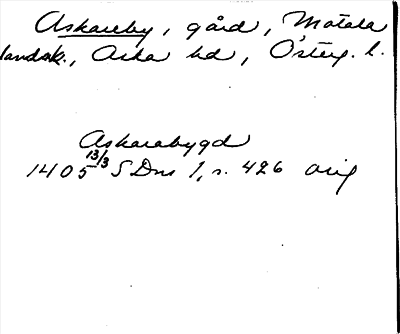 Askareby, gård, Motala
landsk., Aska hd, Österg. l.
Askarabygd
1405 13/3 SDns 1, s. 426 orig